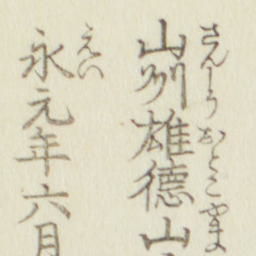 山州雄徳山
さんしうおとこやま
永元年六月
えい